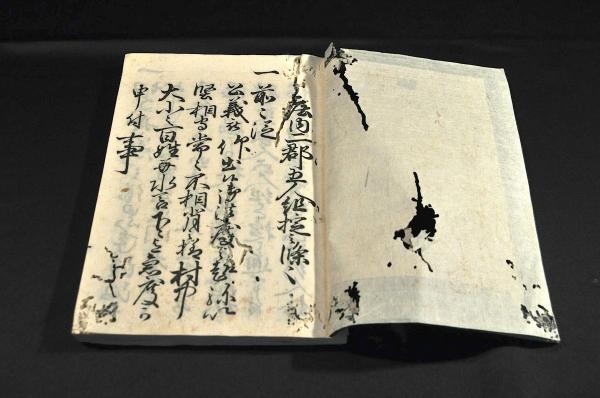 一郡五人組掟之條々
一前々従
公義被仰出候御法度之趣弥以
堅相守常々不相背様村中
大小之百姓毎水呑下々迄急度可
申付事